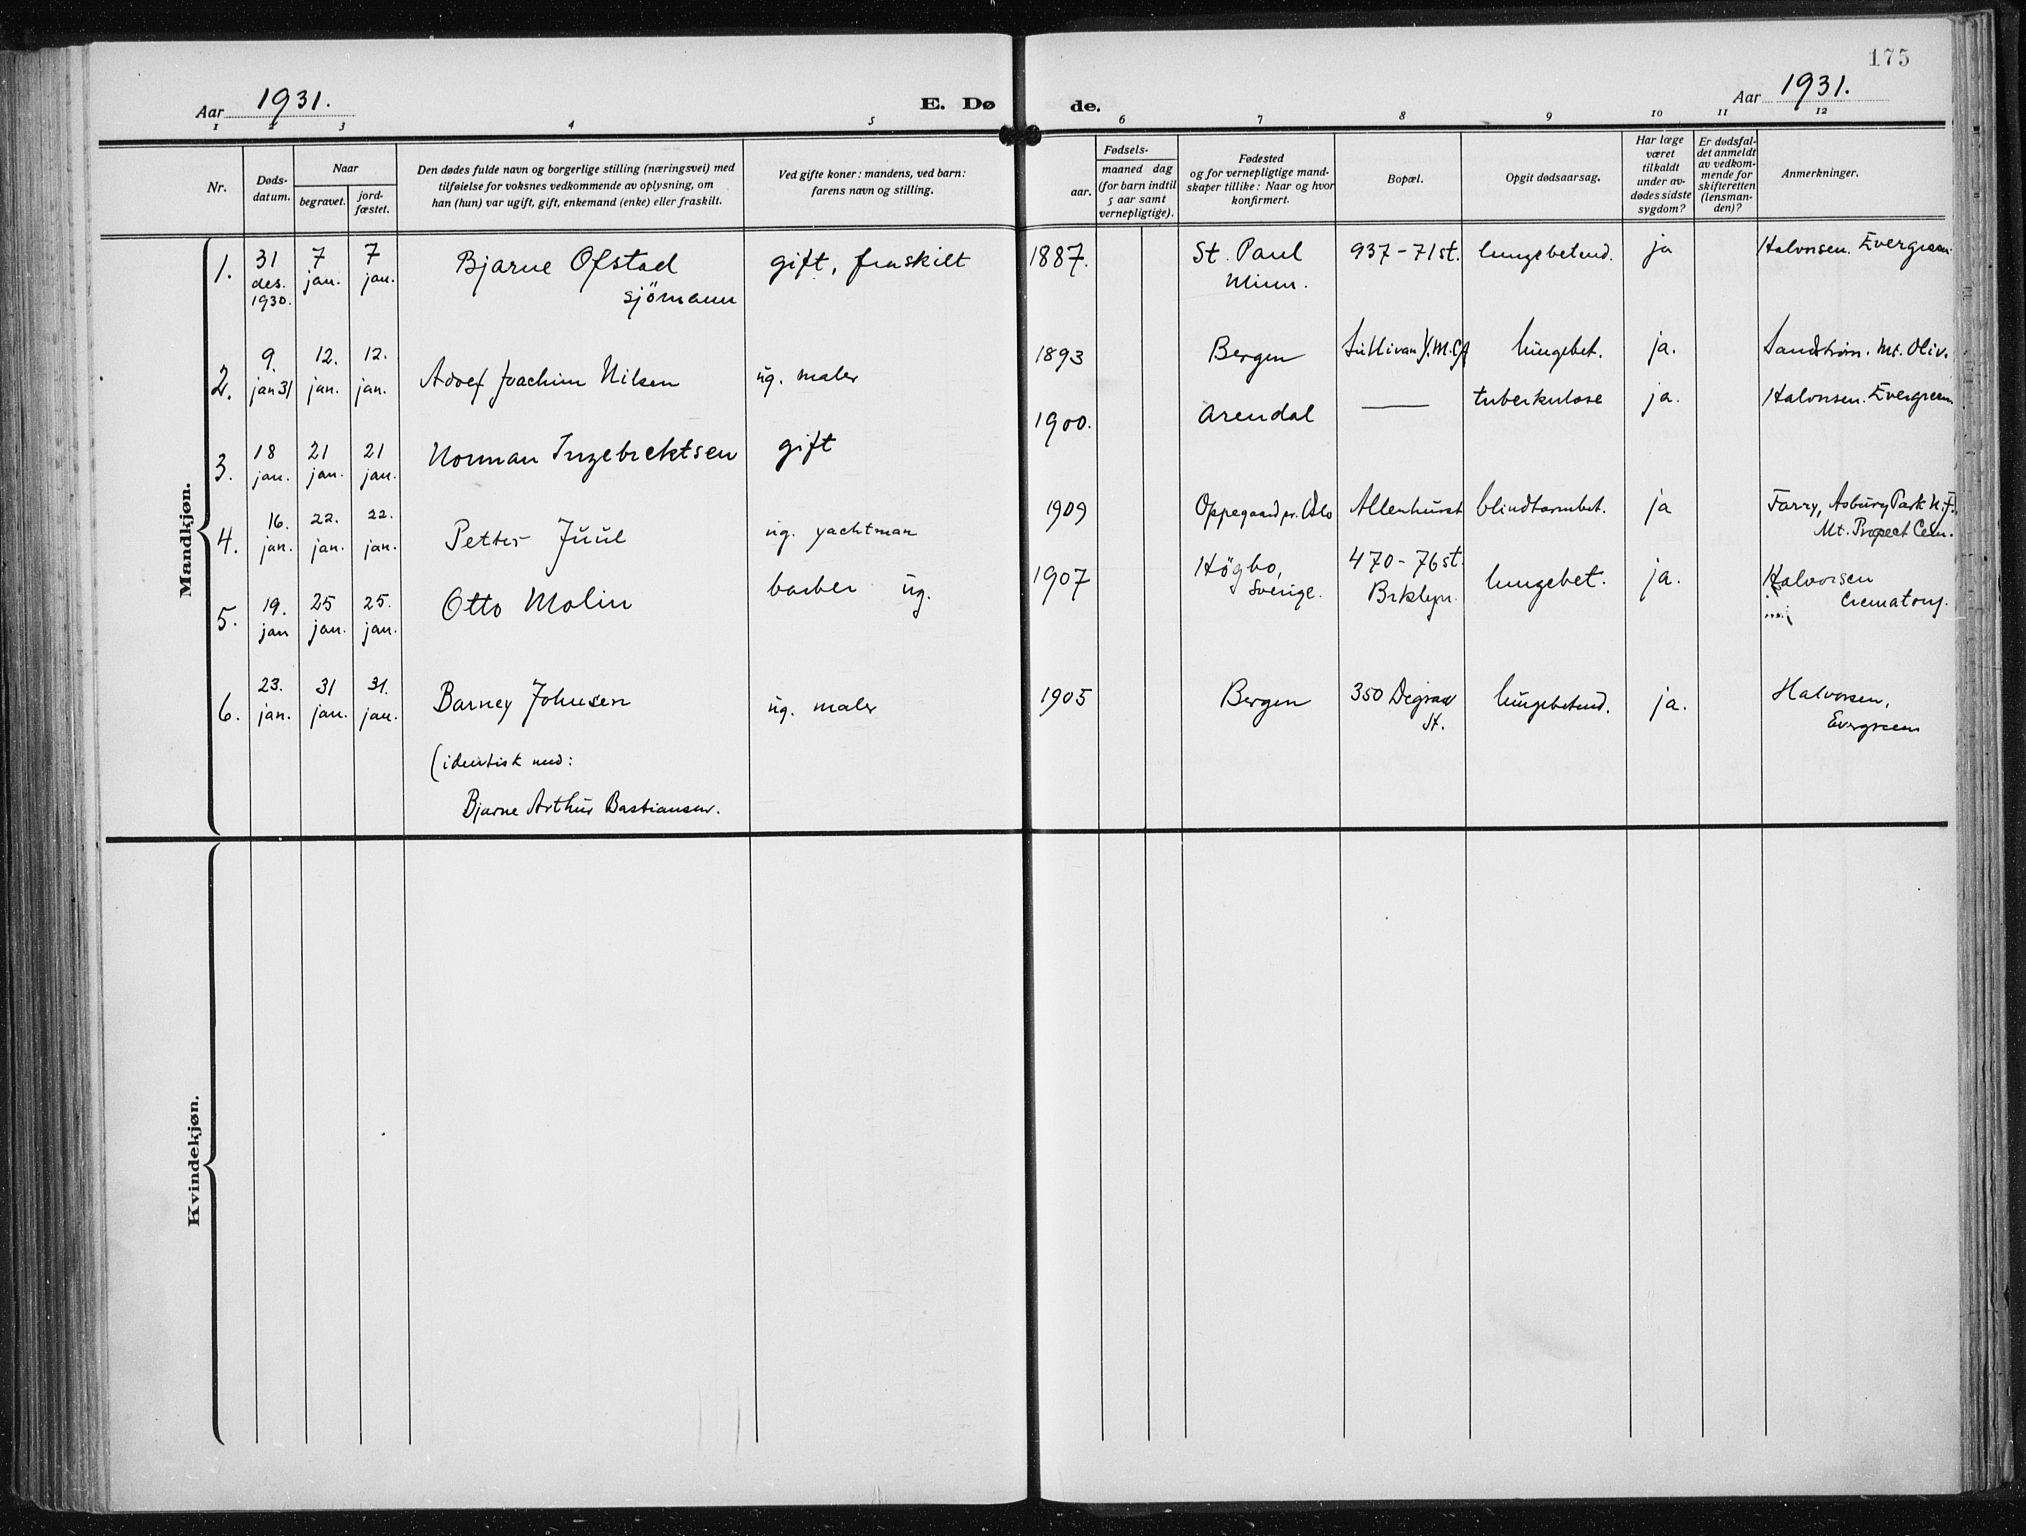 175
Aar 1931.
E. Døde.
Aar 1931.
1 2 3 4 5 6 7 8 9 10 11 12
Nr.
Døds-
datum.
Naar
begravet.
jord-
fæstet.
Den dødes fulde navn og borgerlige stilling (næringsvei) med
tilføielse for voksnes vedkommende av oplysning, om
han (hun) var ugift, gift, enkemand (enke) eller fraskilt.
Ved gifte koner: mandens, ved barn:
farens navn og stilling.
Fødsels-
aar.
maaned dag
(for barn indtil
5 aar samt
vernepligtige).
Fødested
og for vernepligtige mand-
skaper tillike: Naar og hvor
konfirmert.
Bopæl.
Opgit dødsaarsag.
Har læge
været
tilkaldt
under av-
dødes sidste
sygdom?
Er dødsfal-
det anmeldt
av vedkom-
mende for
skifteretten
(lensman-
den)?
Anmerkninger.
Mandkjøn.
1. 31 7 7 Bjarne Ofstad gift, fraskilt 1887. St. Paul 937-71st. lungebetend. ja Halvorsen. Evergreen
des. jan. jan. sjömann Minn.
1930.
2. 9. 12. 12. Adolf Joachim Nilsen ug. maler 1893 Bergen Sullivan Y.M.C.A lungebet. ja. Sandström. Mt. Oliv.
jan 31 jan. jan.
3. 18 21 21 Norman Ingebrektsen gift 1900. Arendal — tuberkulose ja. Halvorsen. Evergreen
jan. jan. jan.
4. 16. 22. 22. Petter Juul ug. yachtman 1909 Oppegaard pr. Oslo Allenhurst blindtarmbet. ja Farry, Asbury Park N.J.
jan. jan. jan. Mt. Propect Cem.
5. 19. 25 25. Otto Molin barber ug. 1907 Högbo, 470-76st. lungebet. ja. Halvorsen
jan jan. jan. Sverige. Brklyn. Crematory.
6. 23. 31 31. Barney Johnsen ug. maler 1905 Bergen 350 Degraw lungebetend. ja. Halvorsen,
jan. jan. jan. St. Evergreen
(identisk med:
Bjarne Arthur Bastiansen.
Kvindekjøn.